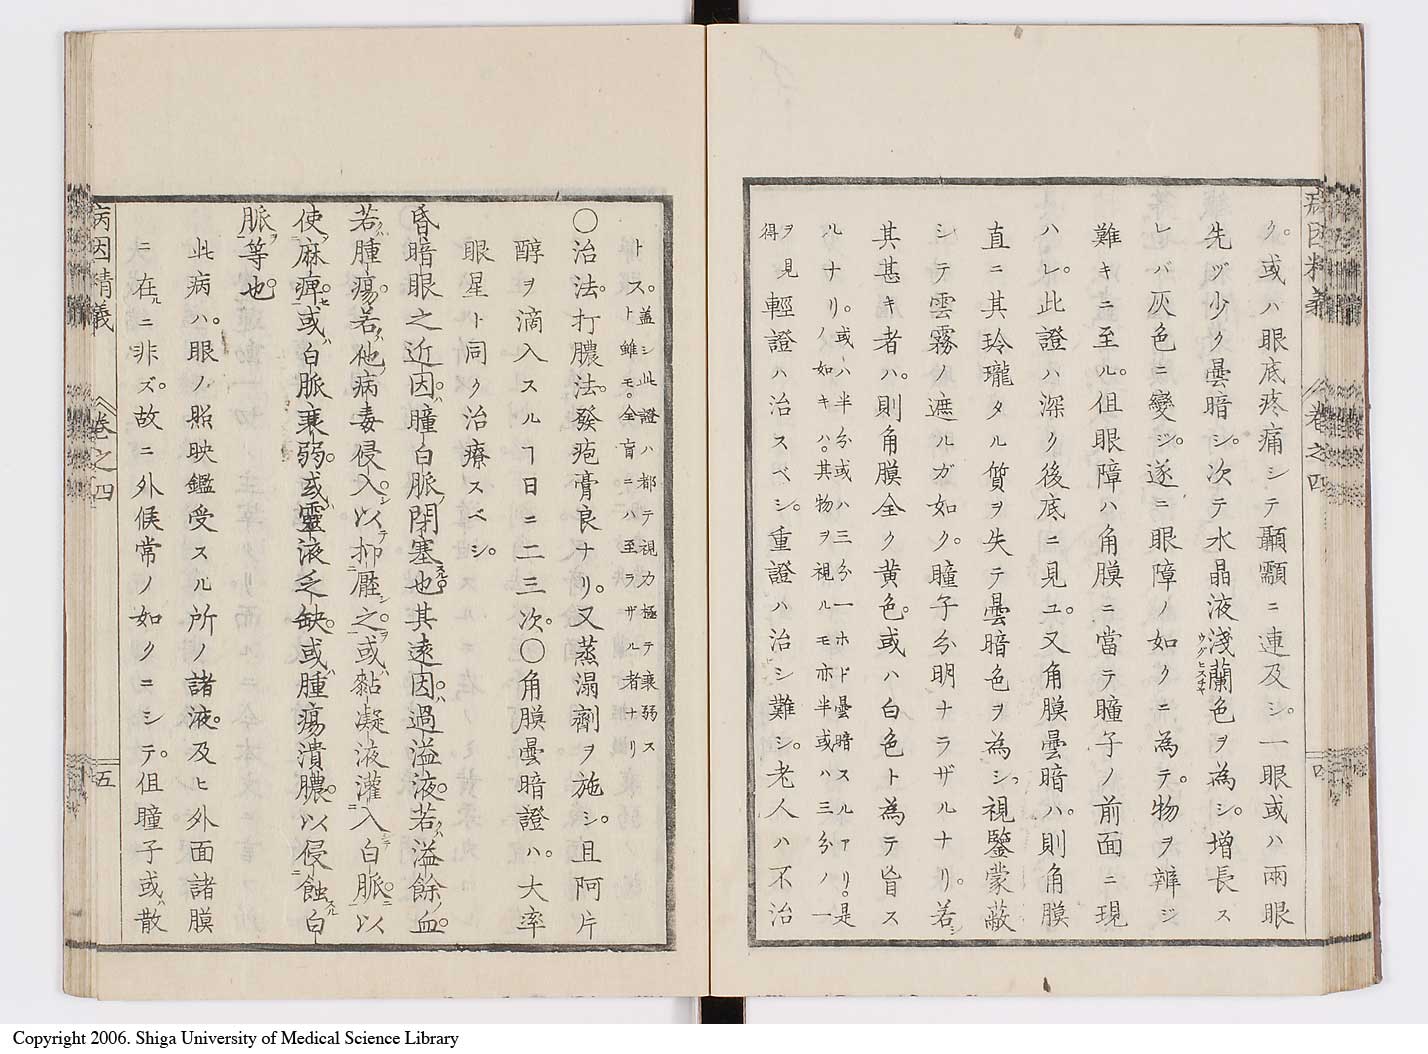 病因精義 卷之四 四
ク。或ハ眼底疼痛シテ顳顬ニ連及シ。一眼或ハ兩眼
先ヅ少ク曇暗シ。次テ水晶液淺蘭色ヲ為シ。增長ス
レバ灰色ニ變ジ。遂ニ眼障ノ如クニ為テ。物ヲ辨ジ
難キニ至ル。伹眼障ハ角膜ニ當テ瞳子ノ前面ニ現
ハレ。此證ハ深ク後底ニ見ユ。又角膜曇暗ハ。則角膜
直ニ其玲瓏タル質ヲ失テ曇暗色ヲ為シ。視鑒蒙蔽
シテ雲霧ノ遮ルガ如ク。瞳子分明ナラザルナリ。若シ
其甚キ者ハ。則角膜全ク黄色。或ハ白色ト為テ盲ス
ルナリ。或ハ半分或ハ三分一ホド曇暗スルアリ。是
ノ如キハ。其物ヲ視ルモ亦半或ハ三分ノ一
ヲ見
得
輕證ハ治スベシ。重證ハ治シ難シ。老人ハ不治
トス。盖シ此證ハ都テ視力極テ衰弱ス
ト雖モ。全盲ニハ至ラザル者ナリ
〇治法。打膿法。發疱膏良ナリ。又蒸溻劑ヲ施シ。且阿片
醇ヲ滴入スルヿ日ニ二三次。〇角膜曇暗證ハ。大率
眼星ト同ク治療スベシ。
昏暗眼之近因。ハ瞳白脈閉塞スル也。其遠因。ハ過溢液。若クハ溢餘ノ血。
若クハ腫瘍。若クハ他ノ病毒侵入シ。以テ抑壓シ之ヲ。或ハ黏凝液灌入シテ白脈ニ。以
使ヲ麻痺セ。或ハ白脈衰弱。或ハ靈液乏缺。或ハ腫瘍潰膿。以侵蝕スル白
脈ヲ等也。
此病ハ。眼ノ照映鑑受スル所ノ諸液。及ヒ外面諸膜
ニ在ルニ非ズ。故ニ外候常ノ如クニシテ。伹瞳子或ハ散
病因精義 卷之四 五
Copyright 2006. Shiga University of Medical Science Library